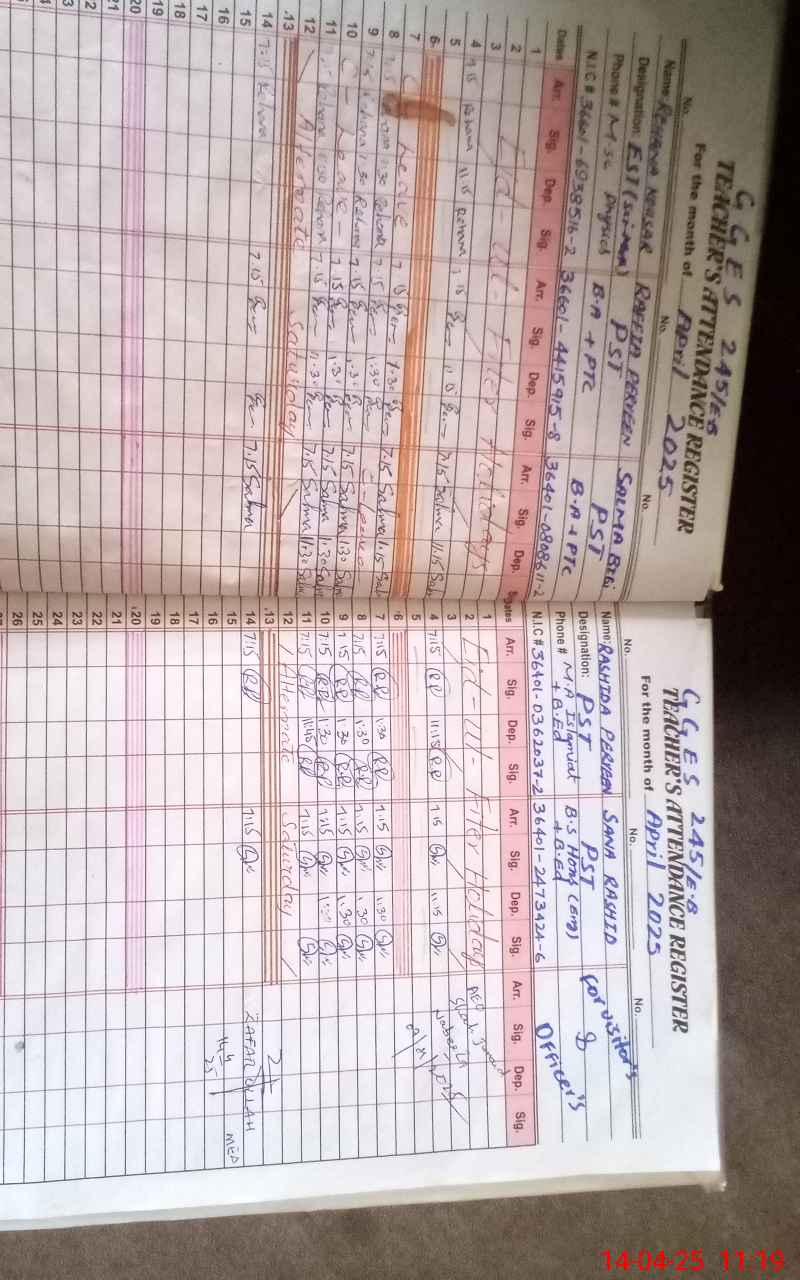 G G E S 245/E.B
TEACHER'S ATTENDANCE REGISTER
For the month of April 2025
No. No. No.
Name: REHANA KOUSAR RAFFIA PERVEEN SALMA BIBI
Designation: EST (Sci-Math) PST PST
Phone # M.sc Physics B.A + PTC B.A + PTC
N.I.C # 36601-6938516-2 36601-4415915-8 36401-0808611-2
Dates Arr. Sig. Dep. Sig. Arr. Sig. Dep. Sig. Arr. Sig. Dep. Sig.
1
2 Eid-Ul-Fiter Holidays
3
4 7.15 Rehana 11.15 Rehana 7.15 11.15 7.15 Salma 11.15
5
6
7 C-Leave 7.15 1.30 7.15 Salma 11.15
8 7.15 Rehana 1.30 Rehana 7.15 1.30 C-Leave
9 7.15 Rehana 1.30 Rehana 7.15 1.30 7.15 Salma 1.30
10 C-Leave- 7.15 1.30 7.15 Salma 1.30
11 7.15 Rehana 11.30 Rehana 7.15 11.30 7.15 Salma 11.30
12 Alternate Saturday
13
14 7.15 Rehana 7.15 7.15 Salma
15
16
17
18
19
20
21
22
G G E S 245/E.B
TEACHER'S ATTENDANCE REGISTER
For the month of April 2025
No. No. No.
Name: RASHIDA PERVEEN SANA RASHID For visitor's
Designation: PST PST &
Phone # M.A Islamiat + B.Ed B.S Hons (Eng) + B.Ed Officer's
N.I.C # 36401-0362037-2 36401-2473424-6
Dates Arr. Sig. Dep. Sig. Arr. Sig. Dep. Sig. Arr. Sig. Dep. Sig.
1
2 Eid-Ul-Fiter Holiday
3
4 7:15 RP 11:15 RP 7:15 11:15
5
6
7 7:15 RP 1:30 RP 7:15 1:30
8 7:15 RP 1:30 RP 7:15 1:30
9 7:15 RP 1:30 RP 7:15 1:30
10 7:15 RP 1:30 RP 7:15 1:30
11 7:15 RP 11:45 RP 7:15
12 Alternate Saturday
13
14 7:15 RP 7:15 ZAFAR ULLAH
15 MED
16
17
18
19
20
21
22
23
24
25
26
14-04-25 11:19